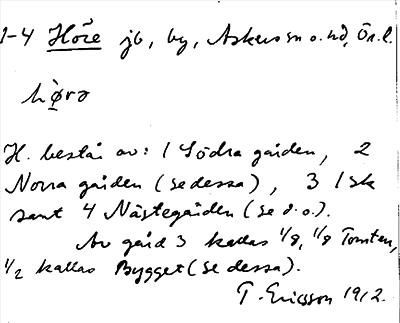 1-4 Höre jb, by, Askerssn o. hd, Ör.l.
hø̀rə
H. bestå av: 1 Södra gården, 2
Norra gården (se dessa), 3 1 sk
samt 4 Nästegården (se d.o.).
Av gård 3 kallas 1/8, 1/8 Tomten,
1/2 kallas Bygget (se dessa).
T. Ericsson 1912.